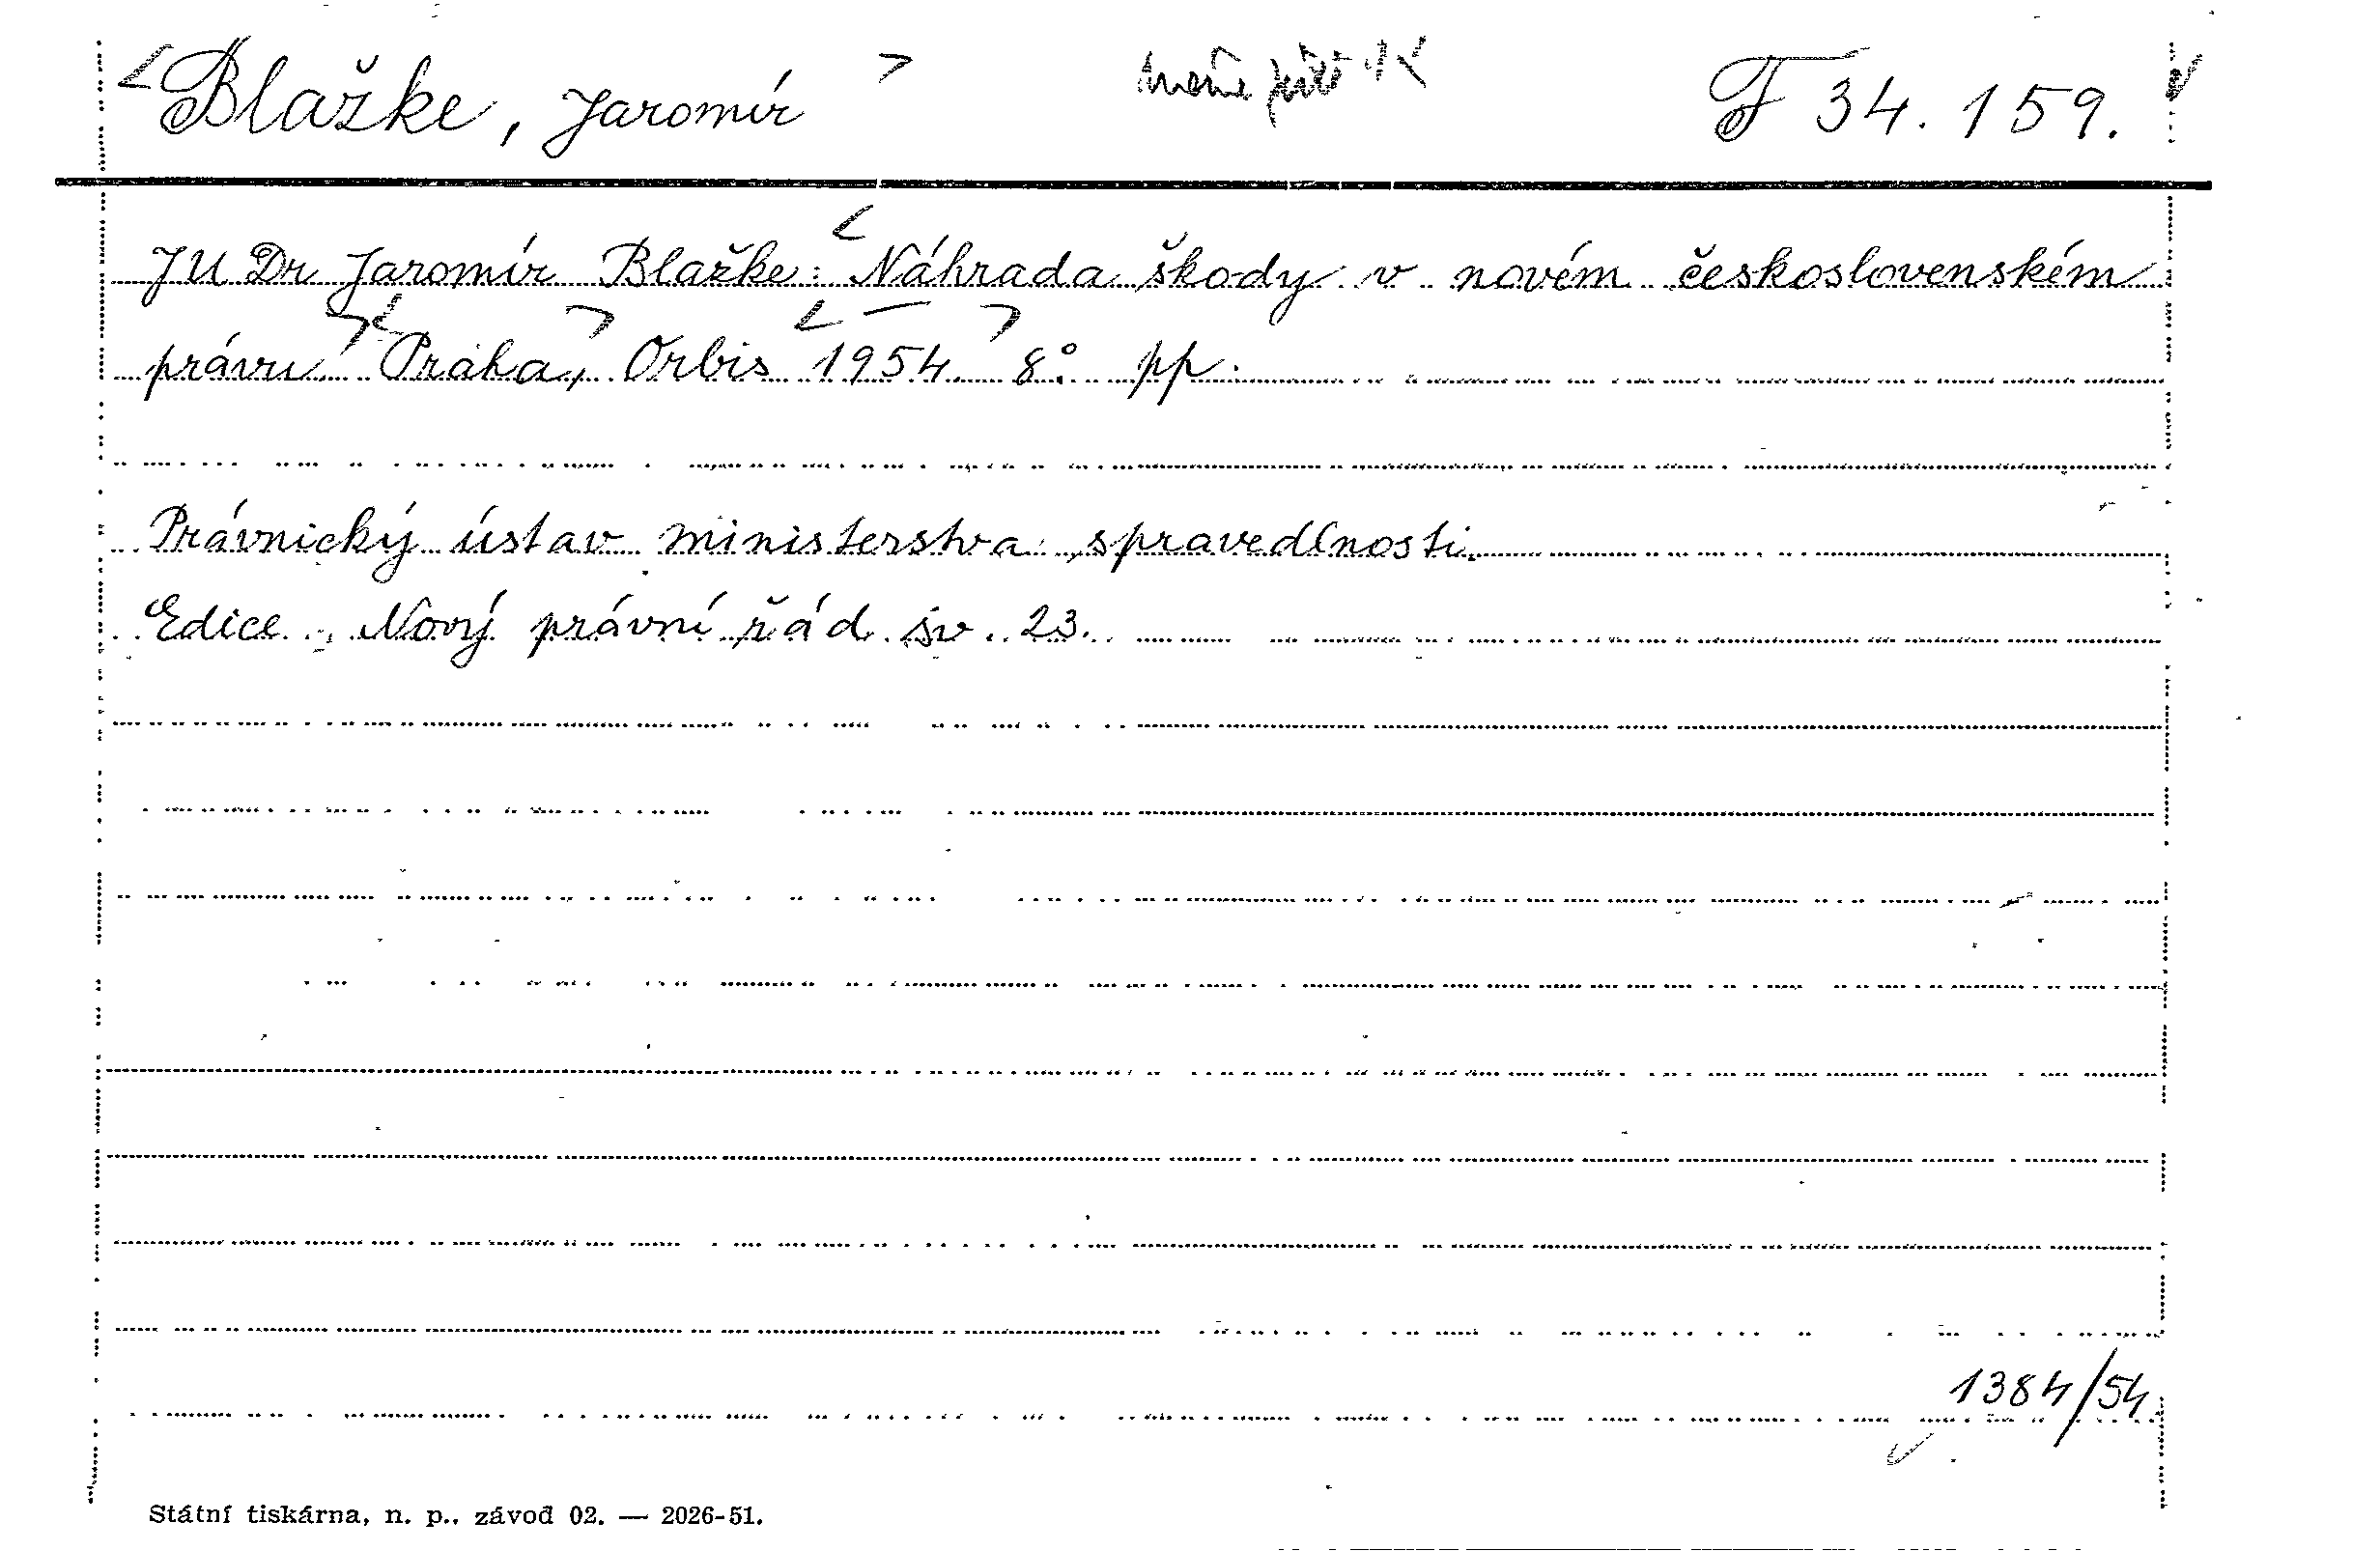 Blažke, Jaromír F 34.159.
JUDr Jaromír Blažke: Náhrada škody v novém československém
právu Praha, Orbis 1954 8° pp.
Právnický ústav ministerstva spravedlnosti.
Edice: Nový právní řád sv. 23.
1384/54
Státní tiskárna, n. p., závod 02. — 2026-51.